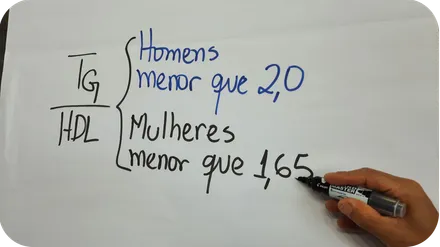 TG
HDL
Homens
menor que 2,0
Mulheres
menor que 1,65